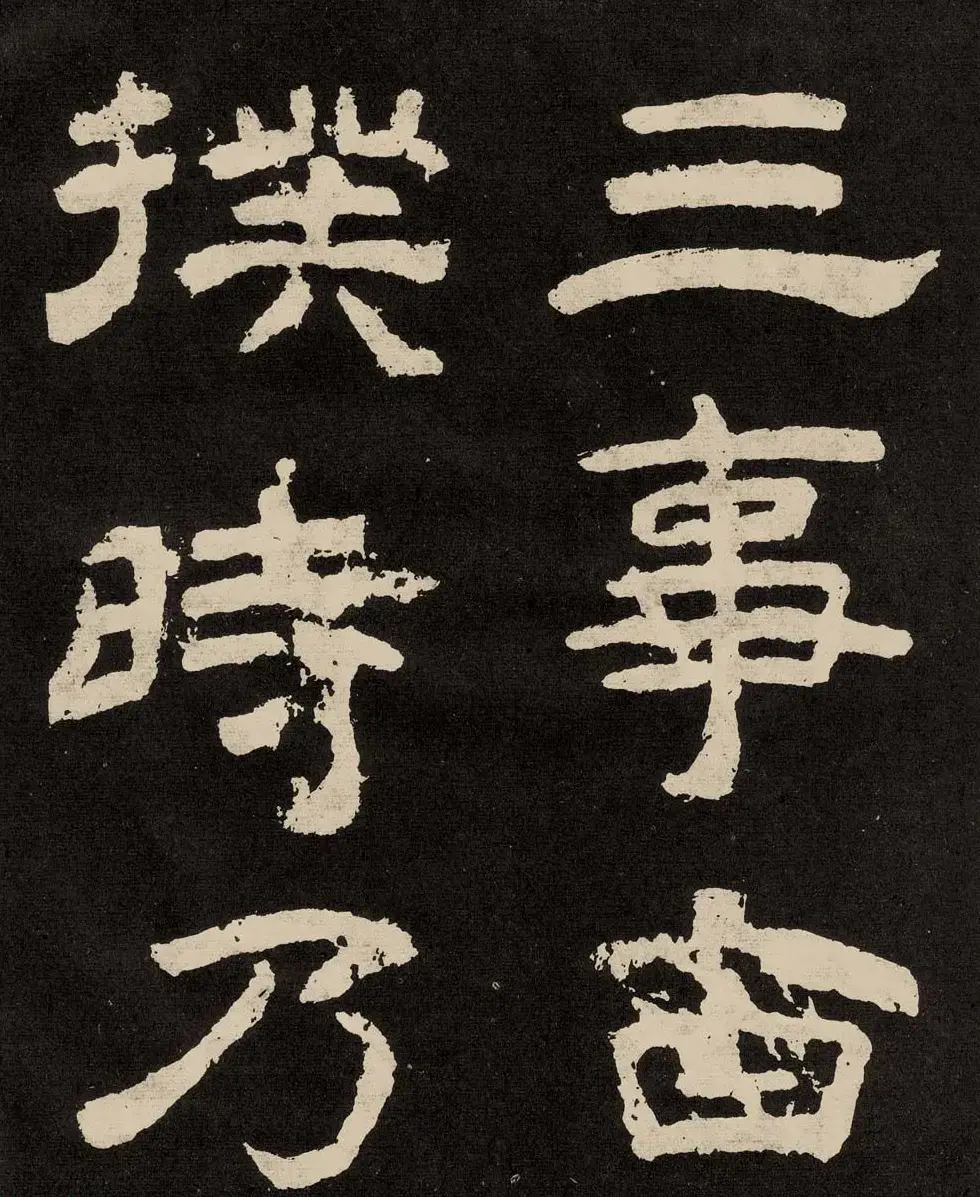 三事宙
撲時乃